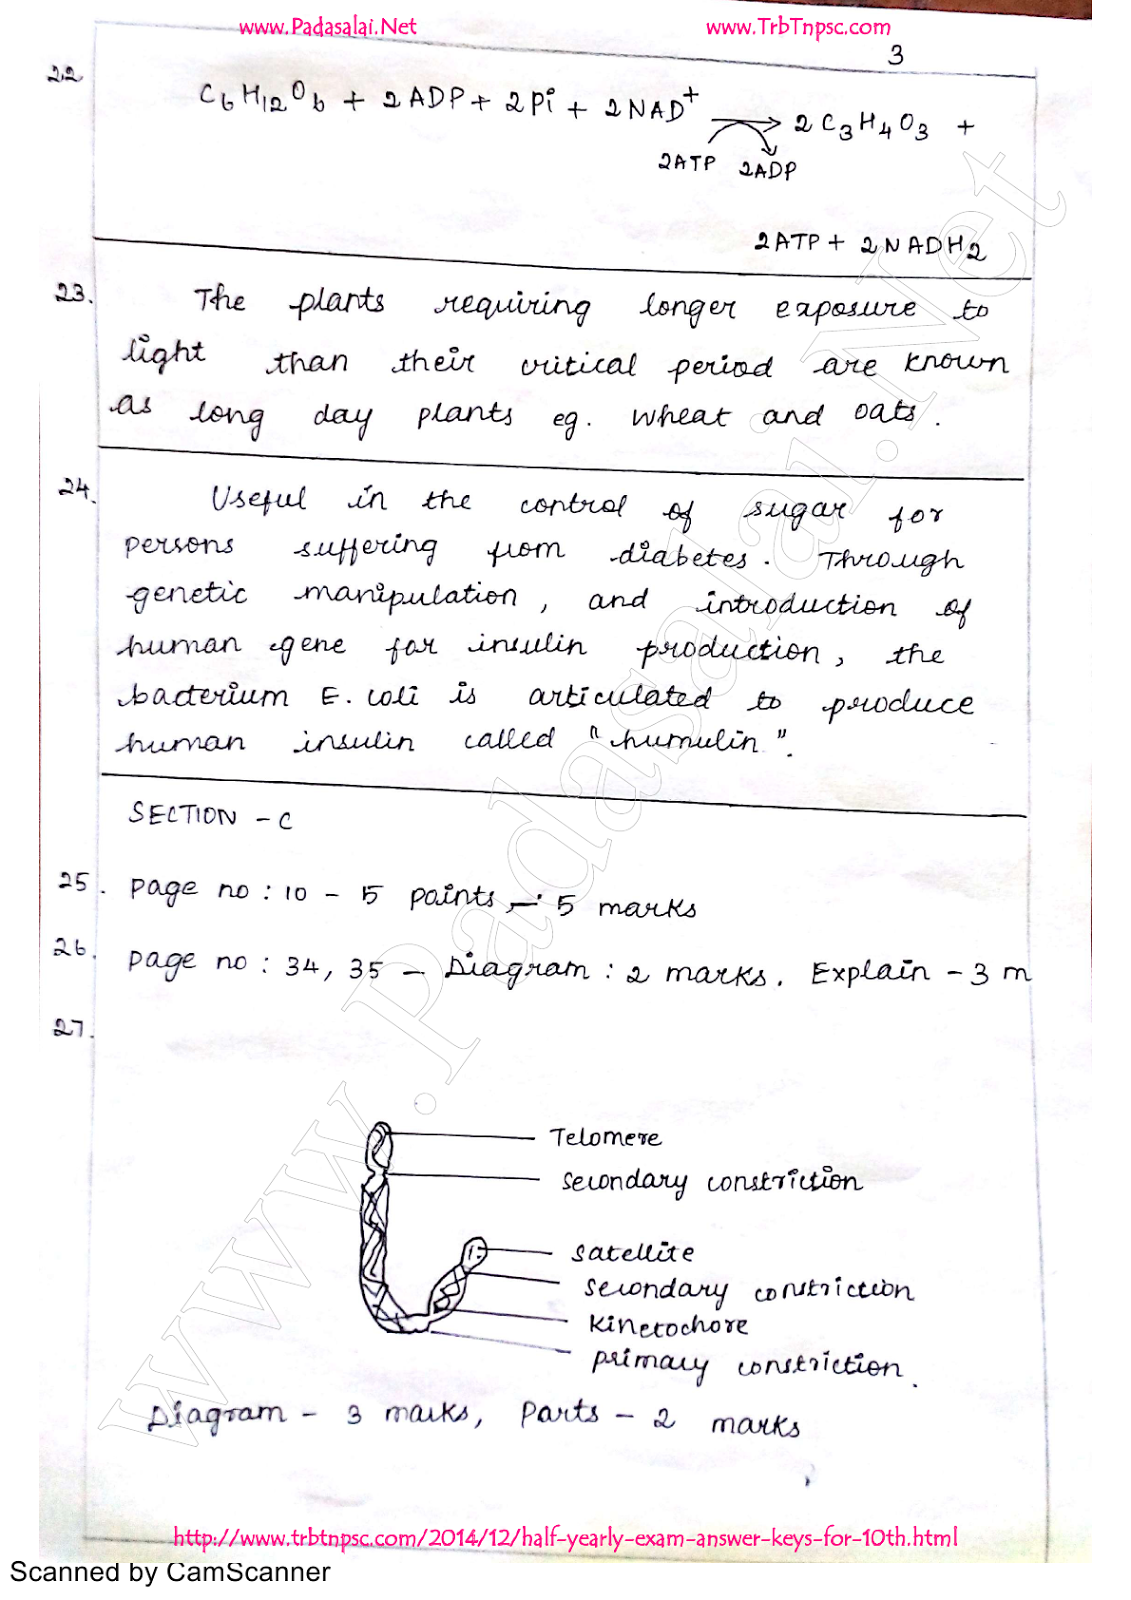 www.Padasalai.Net www.TrbTnpsc.com
3
22 C6H12O6 + 2ADP + 2Pi + 2NAD+ → 2C3H4O3 +
2ATP 2ADP
2ATP + 2NADH2
23. The plants requiring longer exposure to
light than their critical period are known
as long day plants eg. Wheat and Oats.
24. Useful in the control of sugar for
persons suffering from diabetes. Through
genetic manipulation, and introduction of
human gene for insulin production, the
bacterium E. coli is articulated to produce
human insulin called "humulin".
SECTION - C
25. Page no : 10 - 5 points - 5 marks
26. Page no : 34, 35 - Diagram : 2 marks. Explain - 3 m
27.
Telomere
Secondary constriction
Satellite
Secondary constriction
Kinetochore
primary constriction.
Diagram - 3 marks, Parts - 2 marks
www.Padasalai.Net
http://www.trbtnpsc.com/2014/12/half-yearly-exam-answer-keys-for-10th.html
Scanned by CamScanner